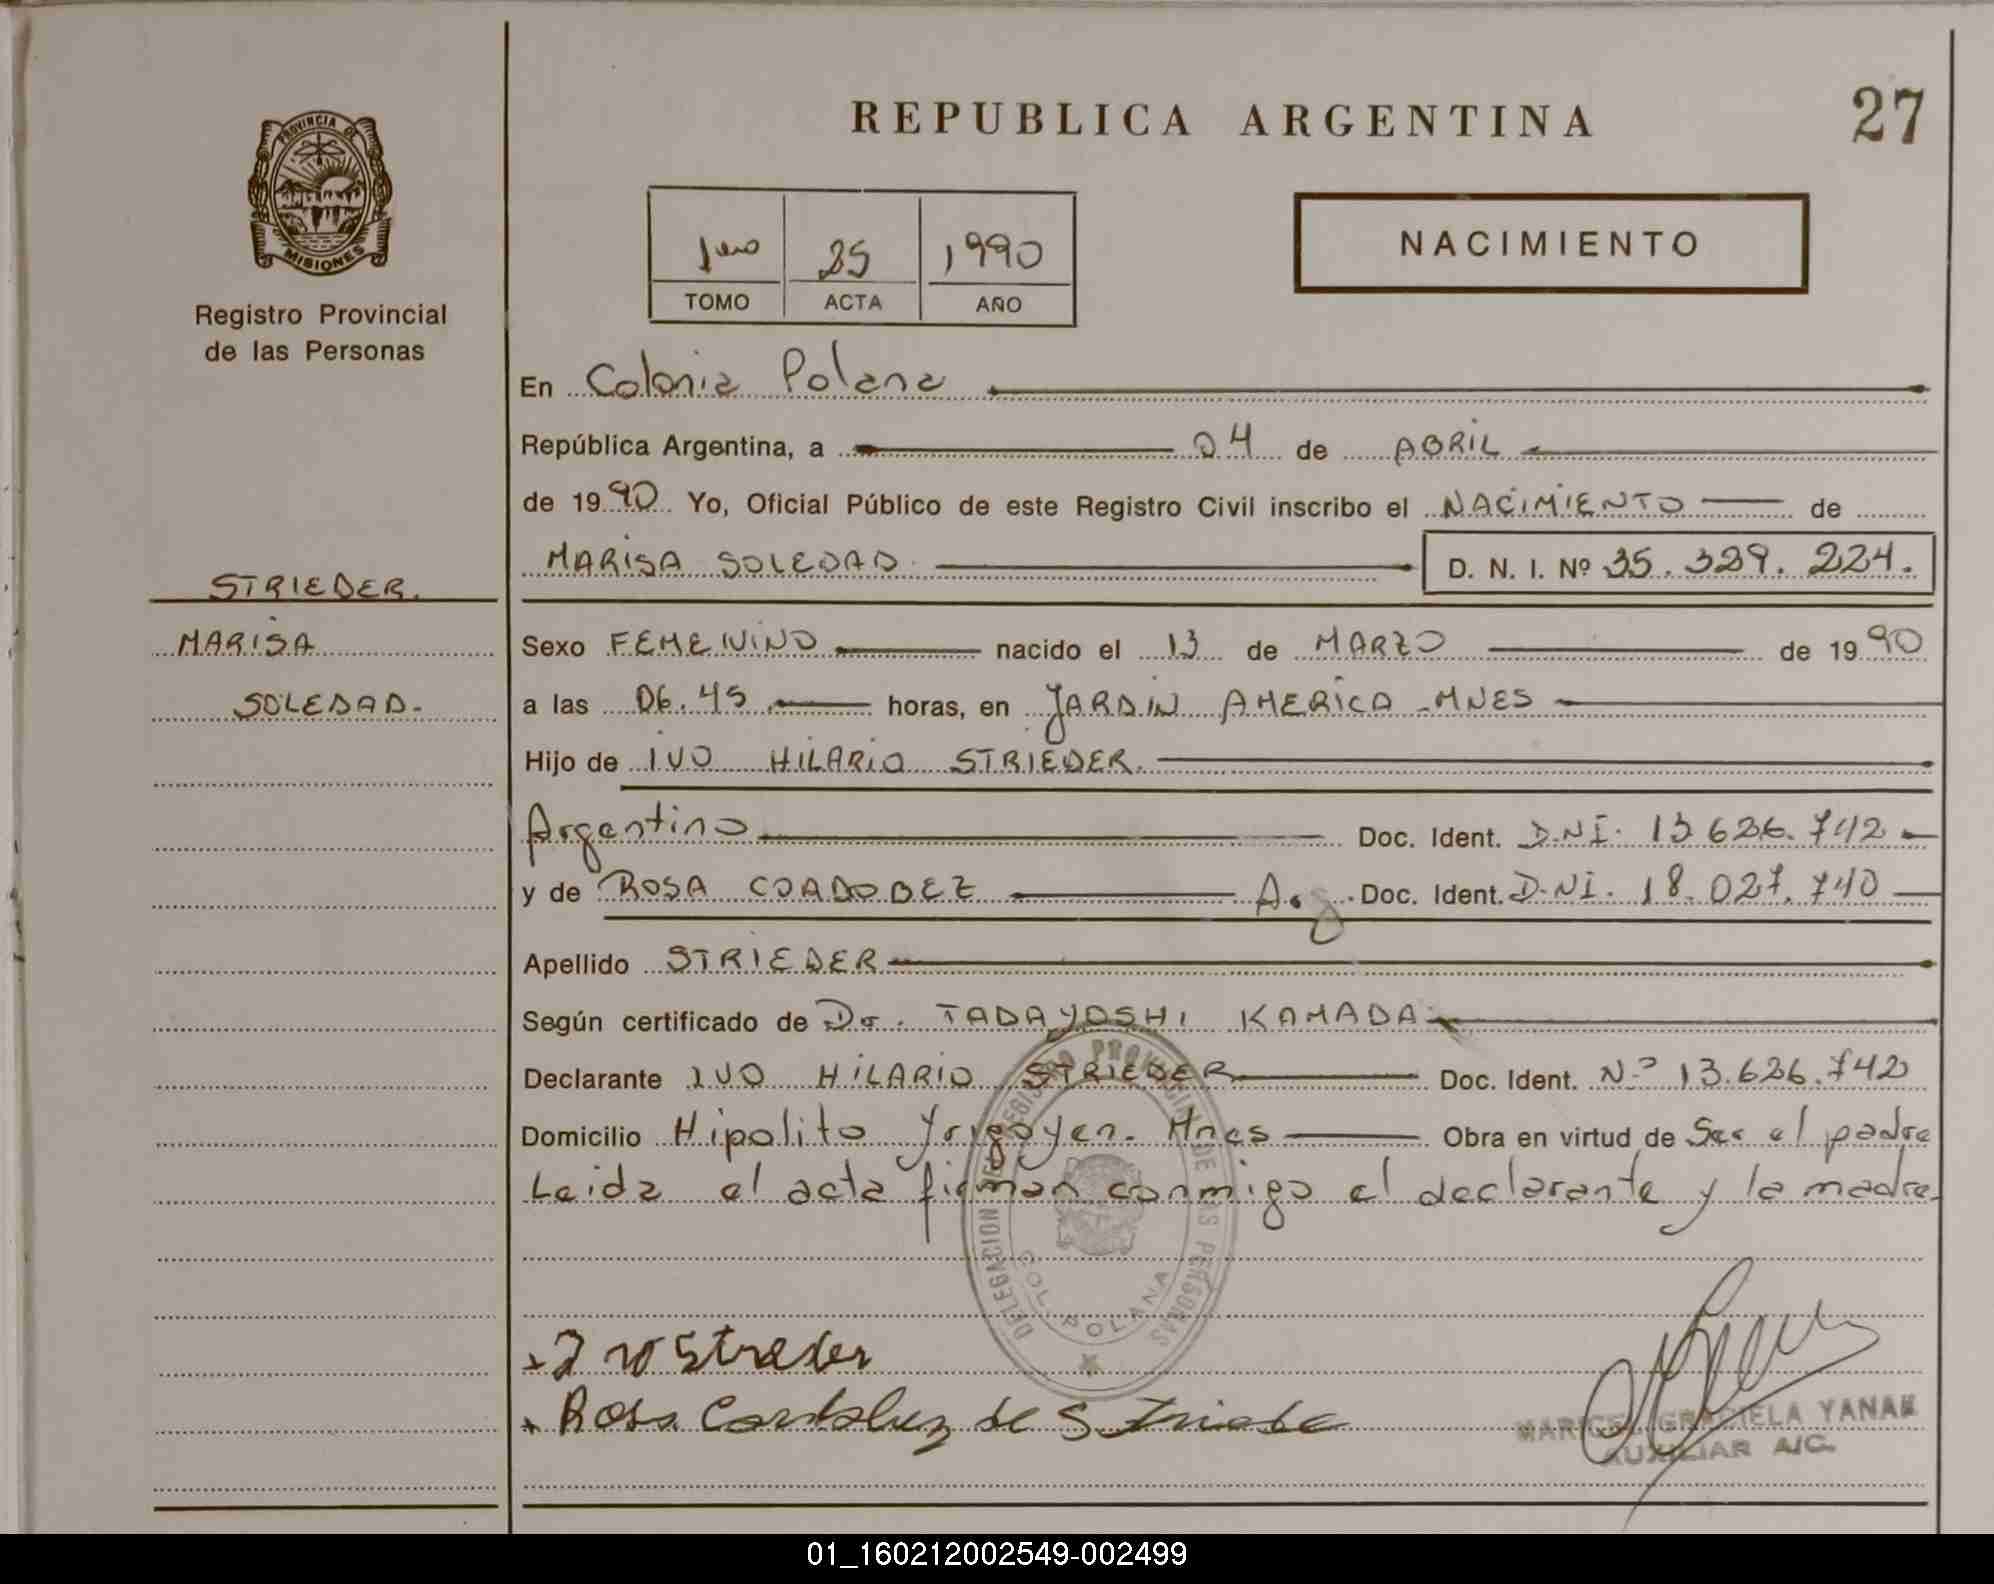 REPUBLICA ARGENTINA
27
PROVINCIA DE
MISIONES
Registro Provincial
de las Personas
1990
TOMO ACTA AÑO
NACIMIENTO
En Colonia Polana
República Argentina, a 04 de ABRIL
de 1990 Yo, Oficial Público de este Registro Civil inscribo el NACIMIENTO de
MARISA SOLEDAD D. N. I. Nº 35.329.224.
STRIEDER.
MARISA
SOLEDAD.
Sexo FEMENINO nacido el 13 de MARZO de 1990
a las 06.45 horas, en JARDIN AMERICA - MNES
Hijo de IVO HILARIO STRIEDER.
Argentino Doc. Ident. D.N.I. 13.626.742
y de ROSA Arg. Doc. Ident. D.N.I. 18.027.740
Apellido STRIEDER
Según certificado de Dr. TADAYOSHI KAMADA
Declarante IVO HILARIO STRIEDER Doc. Ident. Nº 13.626.742
Domicilio Hipolito Yrigoyen - Mnes Obra en virtud de Ser el padre
Leida el acta firman conmigo el declarante y la madre.
DELEGACION DEL REGISTRO PROVINCIAL DE LAS PERSONAS
COL. POLANA
Ivo Strieder
Rosa de
GRACIELA YANAK
AUXILIAR A/C.
01_160212002549-002499